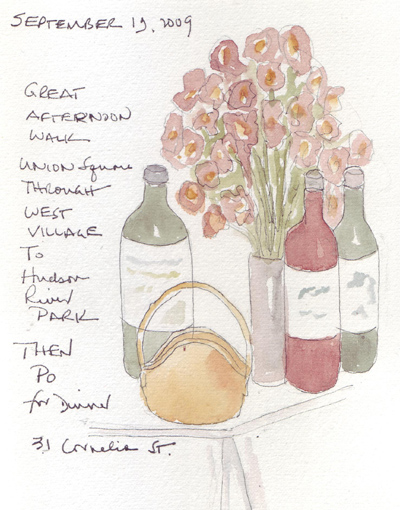 SEPTEMBER 19, 2009
GREAT
AFTERNOON
WALK
UNION Square
THROUGH
WEST
VILLAGE
To
Hudson
River
PARK
THEN
PO
for Dinner
31 Cornelia ST.